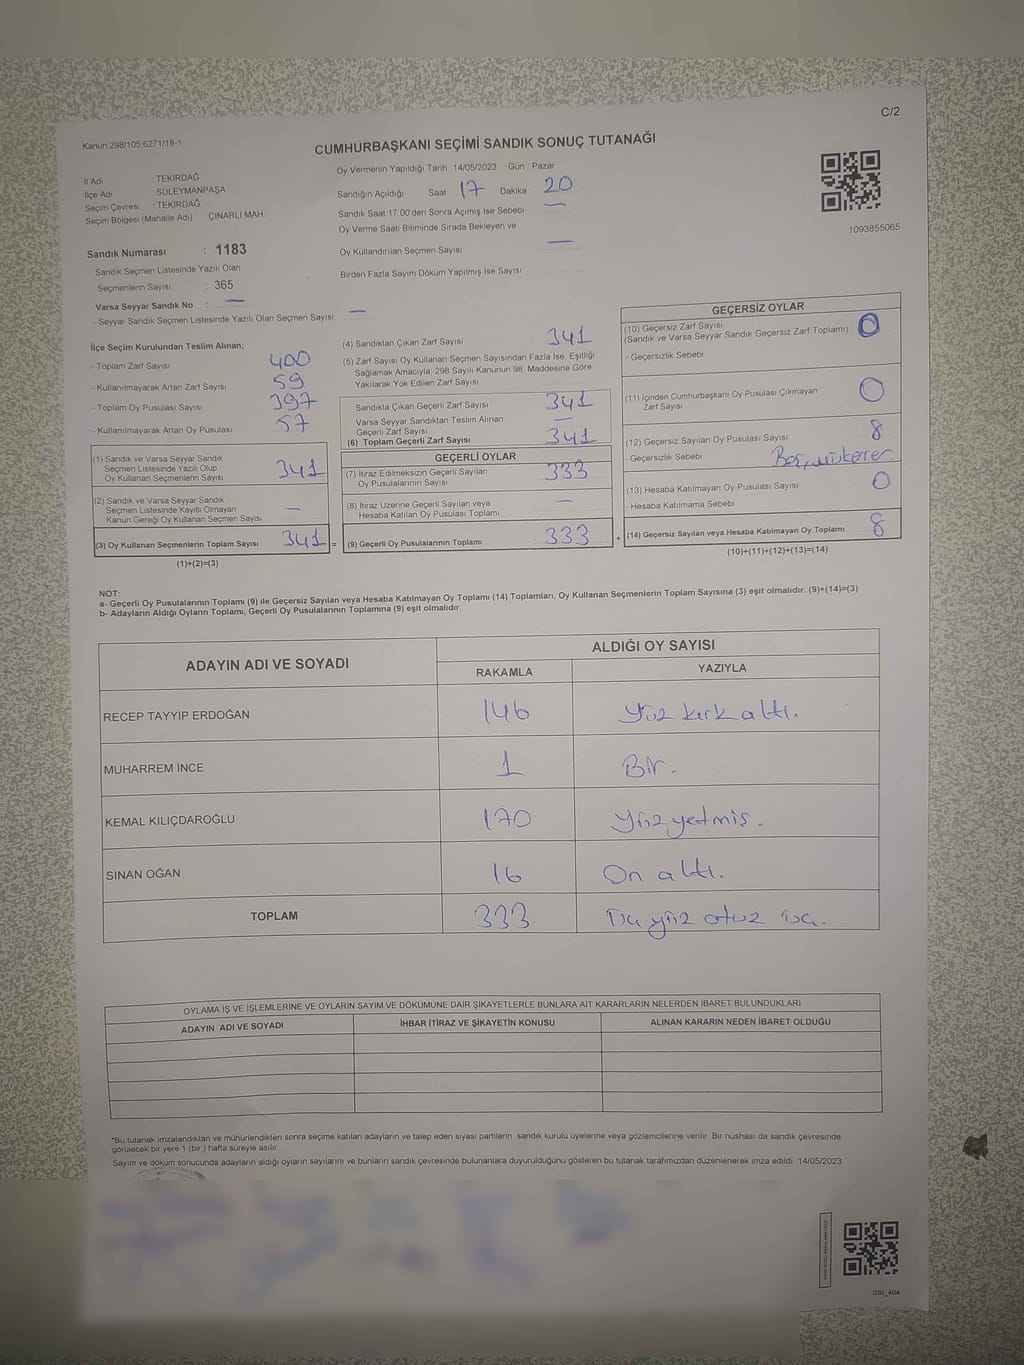 C/2
Kanun;298/105;6271/18-1
CUMHURBAŞKANI SEÇİMİ SANDIK SONUÇ TUTANAĞI
Oy Vermenin Yapıldığı Tarih : 14/05/2023 Gün : Pazar
İl Adı TEKİRDAĞ
İlçe Adı SÜLEYMANPAŞA
Seçim Çevresi : TEKİRDAĞ
Seçim Bölgesi (Mahalle Adı) ÇINARLI MAH.
Sandığın Açıldığı Saat : 17 Dakika : 20
Sandık Saat 17:00'den Sonra Açımış İse Sebebi —
Oy Verme Saati Bitiminde Sırada Bekleyen ve
Oy Kullandırılan Seçmen Sayısı —
Birden Fazla Sayım Döküm Yapılmış İse Sayısı
1093855065
Sandık Numarası : 1183
- Sandık Seçmen Listesinde Yazılı Olan
Seçmenlerin Sayısı : 365
Varsa Seyyar Sandık No : —
- Seyyar Sandık Seçmen Listesinde Yazılı Olan Seçmen Sayısı: —
İlçe Seçim Kurulundan Teslim Alınan;
- Toplam Zarf Sayısı 400
- Kullanılmayarak Artan Zarf Sayısı 59
- Toplam Oy Pusulası Sayısı 397
- Kullanılmayarak Artan Oy Pusulası 57
(1) Sandık ve Varsa Seyyar Sandık
Seçmen Listesinde Yazılı Olup
Oy Kullanan Seçmenlerin Sayısı 341
(2) Sandık ve Varsa Seyyar Sandık
Seçmen Listesinde Kayıtlı Olmayan
Kanun Gereği Oy Kullanan Seçmen Sayısı —
(3) Oy Kullanan Seçmenlerin Toplam Sayısı 341 =
(1)+(2)=(3)
(4) Sandıktan Çıkan Zarf Sayısı 341
(5) Zarf Sayısı Oy Kullanan Seçmen Sayısından Fazla İse, Eşitliği
Sağlamak Amacıyla, 298 Sayılı Kanunun 98. Maddesine Göre
Yakılarak Yok Edilen Zarf Sayısı
Sandıkta Çıkan Geçerli Zarf Sayısı 341
Varsa Seyyar Sandıktan Teslim Alınan
Geçerli Zarf Sayısı —
(6) Toplam Geçerli Zarf Sayısı 341
GEÇERLİ OYLAR
(7) İtiraz Edilmeksizin Geçerli Sayılan
Oy Pusulalarının Sayısı 333
(8) İtiraz Üzerine Geçerli Sayılan veya
Hesaba Katılan Oy Pusulası Toplamı —
(9) Geçerli Oy Pusulalarının Toplamı 333 +
GEÇERSİZ OYLAR
(10) Geçersiz Zarf Sayısı
(Sandık ve Varsa Seyyar Sandık Geçersiz Zarf Toplamı) 0
- Geçersizlik Sebebi
(11) İçinden Cumhurbaşkanı Oy Pusulası Çıkmayan
Zarf Sayısı 0
(12) Geçersiz Sayılan Oy Pusulası Sayısı 8
- Geçersizlik Sebebi Boş, mükerrer
(13) Hesaba Katılmayan Oy Pusulası Sayısı 0
- Hesaba Katılmama Sebebi
(14) Geçersiz Sayılan veya Hesaba Katılmayan Oy Toplamı 8
(10)+(11)+(12)+(13)=(14)
NOT:
a- Geçerli Oy Pusulalarının Toplamı (9) ile Geçersiz Sayılan veya Hesaba Katılmayan Oy Toplamı (14) Toplamları, Oy Kullanan Seçmenlerin Toplam Sayısına (3) eşit olmalıdır. (9)+(14)=(3)
b- Adayların Aldığı Oyların Toplamı, Geçerli Oy Pusulalarının Toplamına (9) eşit olmalıdır.
ADAYIN ADI VE SOYADI ALDIĞI OY SAYISI
RAKAMLA YAZIYLA
RECEP TAYYİP ERDOĞAN 146 Yüz kırk altı.
MUHARREM İNCE 1 Bir.
KEMAL KILIÇDAROĞLU 170 Yüz yetmiş.
SİNAN OĞAN 16 On altı.
TOPLAM 333 yüz otuz
OYLAMA İŞ VE İŞLEMLERİNE VE OYLARIN SAYIM VE DÖKÜMÜNE DAİR ŞİKAYETLERLE BUNLARA AİT KARARLARIN NELERDEN İBARET BULUNDUKLARI
ADAYIN ADI VE SOYADI İHBAR İTİRAZ VE ŞİKAYETİN KONUSU ALINAN KARARIN NEDEN İBARET OLDUĞU
*Bu tutanak imzalandıktan ve mühürlendikten sonra seçime katılan adayların ve talep eden siyasi partilerin sandık kurulu üyelerine veya gözlemcilerine verilir. Bir nüshası da sandık çevresinde
görülecek bir yere 1 (bir) hafta süreyle asılır.
Sayım ve döküm sonucunda adayların aldığı oyların sayılarını ve bunların sandık çevresinde bulunanlara duyurulduğunu gösteren bu tutanak tarafımızdan düzenlenerek imza edildi. 14/05/2023
SSI_404